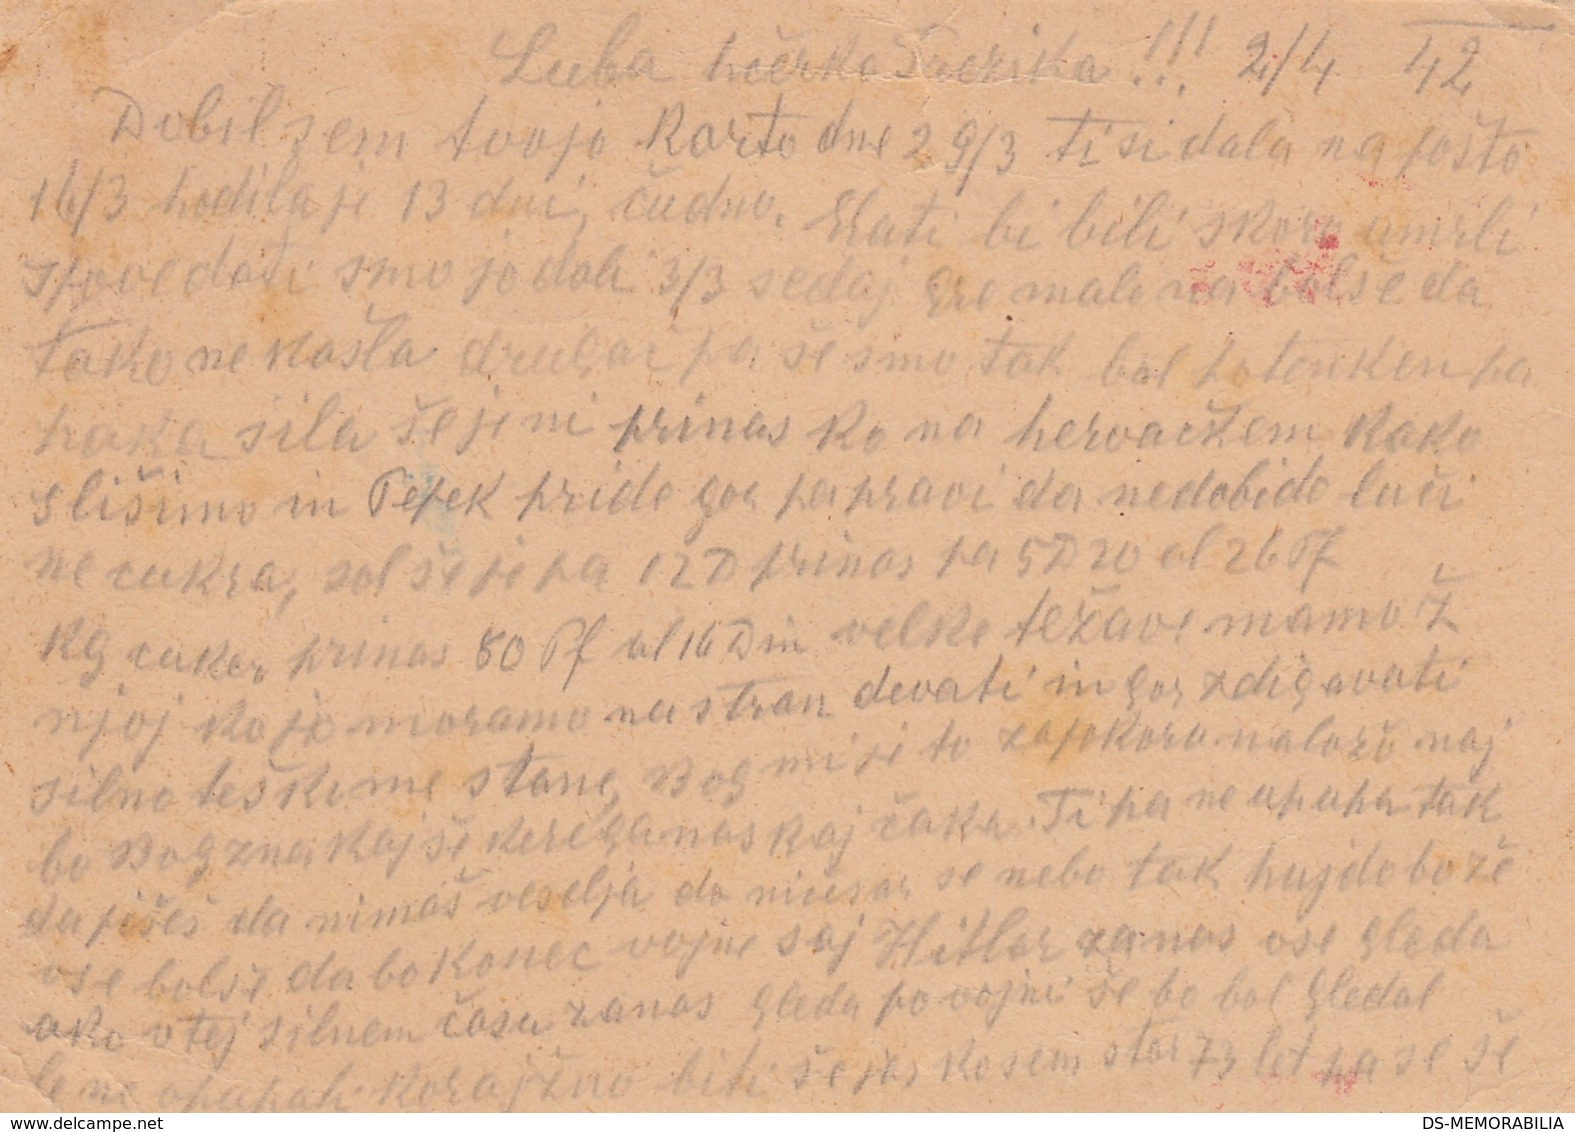 Luba hčerka !!! 2/4 42
Dobil sem tvojo Karto dne 29/3 ti si dala na pošto
16/3 hodila je 13 dni, čudno. Mati bi bili skoro umrli
spovedati smo jo dali 3/3 sedaj gre malo na bolše da
tako ne kašla drugač pa še smo tak bol potenken pa
haka sila še je ni prinas ko na hervačkem kako
slišimo in Pepek pride gor pa pravi da nedobido luči
ne cukra, sol še je pa 12 D prinas pa 5 D 20 al 26 Pf
Kg cuker prinas 80 Pf al 16 Din velke težave mamo ž
njoj ko jo moramo na stran devati in gor zdigavati
silno teško me stane, Bog mi je to za pokoro naložo naj
bo Bog zna kaj še kerega nas kaj čaka. Ti pa ne upupa tak
da pišeš da nimaš veselja do ničesar se nebo tak hujdo bo že
vse bolše da bo konec vojne saj Hitlar za nas vse gleda
ako v tej silnem času za nas gleda po vojni še bo bol gledal
le ne opupati korajžno biti še jas ko sem star 73 let pa se še
DS-MEMORABILIA